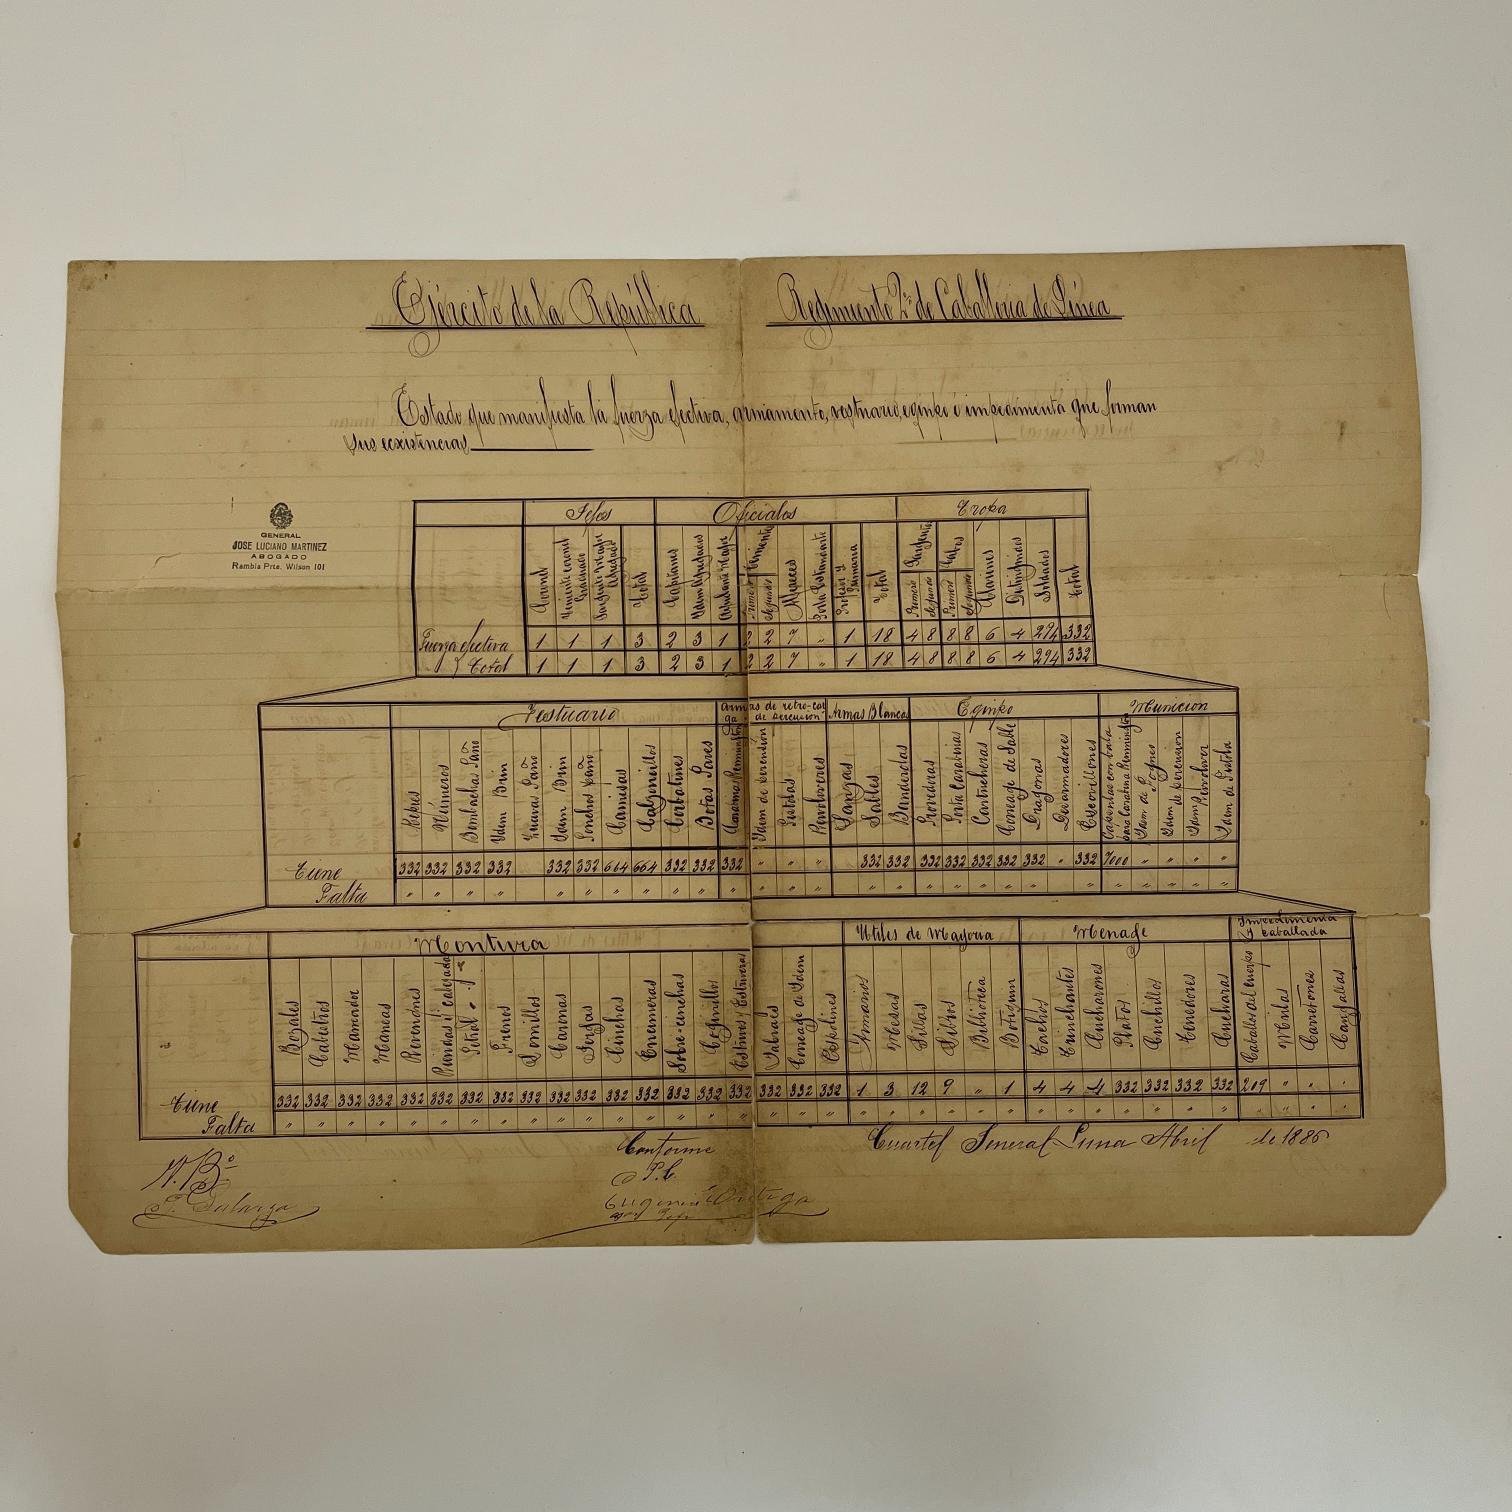 Ejército de la República Regimiento 2º de Caballeria de Línea
Estado que manifiesta la fuerza efectiva, armamento, vestuario, equipo é impedimenta que forman
sus ecxistencias
GENERAL
JOSE LUCIANO MARTINEZ
ABOGADO
Rambla Pte. Wilson 101
Jefes Oficiales Tropa
Coronel Teniente coronel Graduado Sargento Mayor Agregado Total Capitanes Idem Agregados Ayudante Mayor Primero Segundo Alfereces Porta Estandarte Total Sargentos Primero Segundo Cabos Primero Segundo Clarines Distinguidos Soldados Total
Fuerza efectiva 1 1 1 3 2 3 1 2 2 7 " 1 18 4 8 8 8 6 4 294 332
y Total 1 1 1 3 2 3 1 2 2 7 " 1 18 4 8 8 8 6 4 294 332
Vestuario Armas de retro-carga de percusion Armas Blancas Equipo Municion
Kepies Números Bombachas Paño Idem Brin Paño Idem Brin Ponchos paño Camisas Calzoncillos Corbatines Botas Pares Carabinas Remington Idem de percusión Pistolas Revolveres Lanzas Sables Banderolas Porta Carabinas Cartucheras Correage de Sable Dragonas Desarmadores Escovillones Idem de percusion Idem Revolver Idem de Pistola
Tiene 332 332 332 332 332 332 664 664 332 332 332 " " " 332 332 332 332 332 332 332 " 332 7000 " " " "
Falta " " " " " " " " " " " " " " " " " " " " " " " " "
Montura Utiles de Mayoria Menage Impedimenta y caballada
Bozales Cabestros Maneador Maneas Frenos Lomillos Caronas Cinchas Encimeras Sobre-cinchas Coginillos Estrivos y Estriveras Correage de Idem Mesas Sillas Libros Biblioteca Botiquin Tachos Trinchantes Cucharones Platos Cuchillos Tenedores Cucharas Caballos del cuerpo Mulas Carretones Cangallas
Tiene 332 332 332 332 332 332 332 332 332 332 332 332 332 332 332 332 332 332 332 1 3 12 9 " 1 4 4 4 332 332 332 332 209 " " "
Falta " " " " " " " " " " " " " " " " " " " " " " " " " " " " " " " " " " "
Conforme Cuartel General Abril de 1886
V. Bº P. C.
P. Galarza Eugenio Ortega